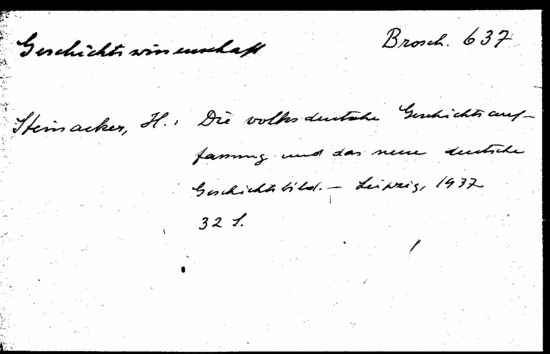 Geschichtswissenschaft Brosch. 637
Steinacker, H.: Die volksdeutsche Geschichtsauf-
fassung und das neue deutsche
Geschichtsbild. – Leipzig, 1937
32 S.